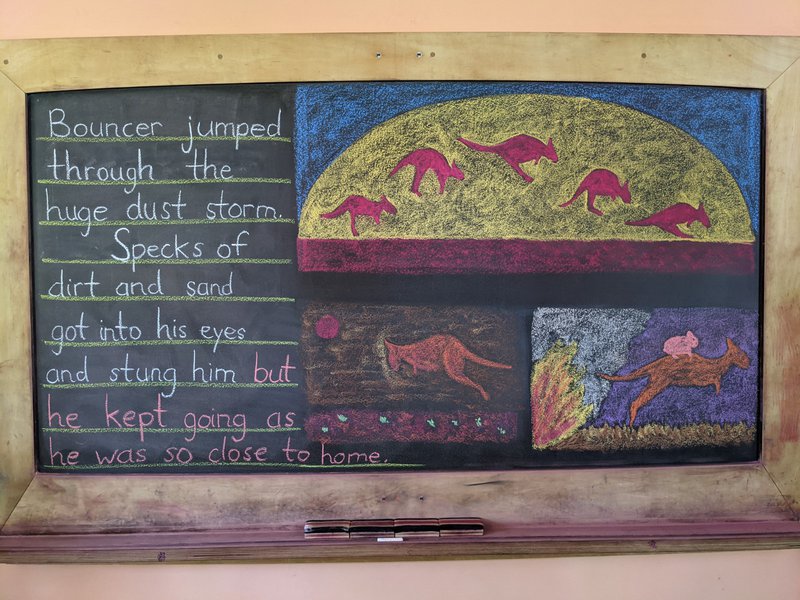 Bouncer jumped
through the
huge dust storm.
Specks of
dirt and sand
got into his eyes
and stung him but
he kept going as
he was so close to home.